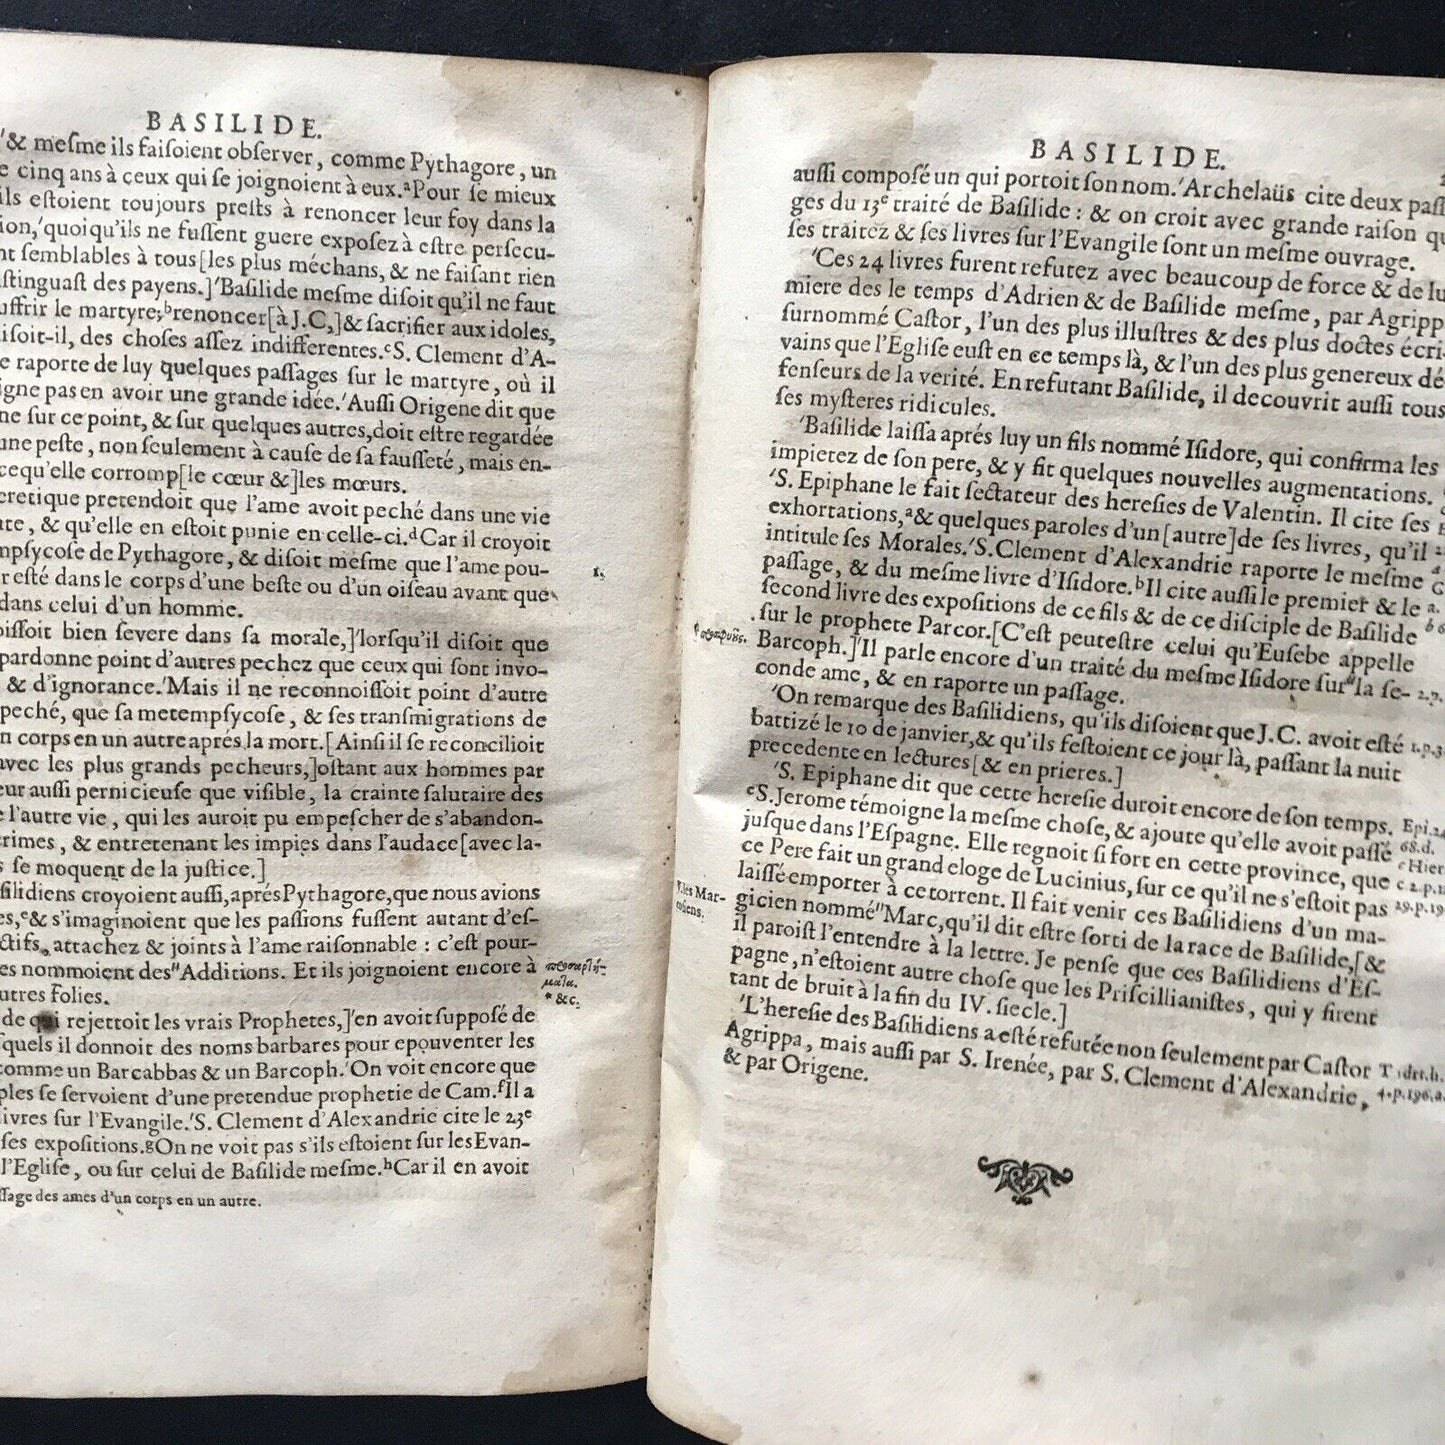 BASILIDE.
'& meſme ils faiſoient obſerver, comme Pythagore, un
cinq ans à ceux qui ſe joignoient à eux.ᵃPour ſe mieux
ils eſtoient toujours preſts à renoncer leur foy dans la
'quoi qu'ils ne fuſſent guere expoſez à eſtre perſecu-
ſemblables à tous[les plus méchans, & ne faiſant rien
des payens.]'Baſilide meſme diſoit qu'il ne faut
le martyre;ᵇrenoncer[à J.C,]& ſacrifier aux idoles,
des choſes aſſez indifferentes.ᶜS. Clement d'A-
raporte de luy quelques paſſages ſur le martyre, où il
pas en avoir une grande idée.'Auſſi Origene dit que
ſur ce point, & ſur quelques autres,doit eſtre regardée
une peſte, non ſeulement à cauſe de ſa fauſſeté, mais en-
cequ'elle corromp[le cœur &]les mœurs.
pretendoit que l'ame avoit peché dans une vie
& qu'elle en eſtoit punie en celle-ci.ᵈCar il croyoit
de Pythagore, & diſoit meſme que l'ame pou-
eſté dans le corps d'une beſte ou d'un oiſeau avant que
dans celui d'un homme.
bien ſevere dans ſa morale,]'lorſqu'il diſoit que
pardonne point d'autres pechez que ceux qui ſont invo-
& d'ignorance.'Mais il ne reconnoiſſoit point d'autre
peché, que ſa metempſycoſe, & ſes tranſmigrations de
corps en un autre aprés la mort.[Ainſi il ſe reconcilioit
avec les plus grands pecheurs,]oſtant aux hommes par
auſſi pernicieuſe que viſible, la crainte ſalutaire des
l'autre vie, qui les auroit pu empeſcher de s'abandon-
& entretenant les impies dans l'audace[avec la-
ſe moquent de la juſtice.]
croyoient auſſi,aprés Pythagore,que nous avions
ᵉ& s'imaginoient que les paſſions fuſſent autant d'eſ-
attachez & joints à l'ame raiſonnable : c'eſt pour-
nommoient des"Additions. Et ils joignoient encore à
folies.
de qui rejettoit les vrais Prophetes,]'en avoit ſuppoſé de
il donnoit des noms barbares pour epouventer les
comme un Barcabbas & un Barcoph.'On voit encore que
ſe ſervoient d'une pretendue prophetie de Cam.ᶠIl a
livres ſur l'Evangile.'S. Clement d'Alexandrie cite le 23ᵉ
ſes expoſitions.ᵍOn ne voit pas s'ils eſtoient ſur les Evan-
l'Egliſe, ou ſur celui de Baſilide meſme.ʰCar il en avoit
des ames d'un corps en un autre.
1.
* &c.
BASILIDE.
auſſi compoſé un qui portoit ſon nom.'Archelaüs cite deux paſſ
ges du 13ᵉ traité de Baſilide : & on croit avec grande raiſon qu
ſes traitez & ſes livres ſur l'Evangile ſont un meſme ouvrage.
'Ces 24 livres furent refutez avec beaucoup de force & de lu
miere des le temps d'Adrien & de Baſilide meſme, par Agripp
ſurnommé Caſtor, l'un des plus illuſtres & des plus doctes écri
vains que l'Egliſe euſt en ce temps là, & l'un des plus genereux dé
fenſeurs de la verité. En refutant Baſilide, il decouvrit auſſi tous
ſes myſteres ridicules.
'Baſilide laiſſa aprés luy un fils nommé Iſidore, qui confirma les
impietez de ſon pere, & y fit quelques nouvelles augmentations.
'S. Epiphane le fait ſectateur des hereſies de Valentin. Il cite ſes
exhortations,ᵃ& quelques paroles d'un[autre]de ſes livres, qu'il
intitule ſes Morales.'S.Clement d'Alexandrie raporte le meſme
paſſage, & du meſme livre d'Iſidore.ᵇIl cite auſſi le premier & le
ſecond livre des expoſitions de ce fils & de ce diſciple de Baſilide
ſur le prophete Parcor.[C'eſt peuteſtre celui qu'Euſebe appelle
Barcoph.]'Il parle encore d'un traité du meſme Iſidore ſur"la ſe-
conde ame, & en raporte un paſſage.
'On remarque des Baſilidiens, qu'ils diſoient que J.C. avoit eſté
battizé le 10 de janvier,& qu'ils feſtoient ce jour là, paſſant la nuit
precedente en lectures[& en prieres.]
'S. Epiphane dit que cette hereſie duroit encore de ſon temps.
ᶜS.Jerome témoigne la meſme choſe, & ajoute qu'elle avoit paſſé
juſque dans l'Eſpagne. Elle regnoit ſi fort en cette province, que
ce Pere fait un grand eloge de Lucinius, ſur ce qu'il ne s'eſtoit pas
laiſſé emporter à ce torrent. Il fait venir ces Baſilidiens d'un ma-
gicien nommé"Marc,qu'il dit eſtre ſorti de la race de Baſilide,[&
il paroiſt l'entendre à la lettre. Je penſe que ces Baſilidiens d'Eſ-
pagne, n'eſtoient autre choſe que les Priſcillianiſtes, qui y firent
tant de bruit à la fin du IV. ſiecle.]
'L'hereſie des Baſilidiens a eſté refutée non ſeulement par Caſtor
Agrippa, mais auſſi par S. Irenée, par S. Clement d'Alexandrie,
& par Origene.
V. les Mar-
Epi.24
68.d.
c Hier
29.p.19
4.p.196.a.